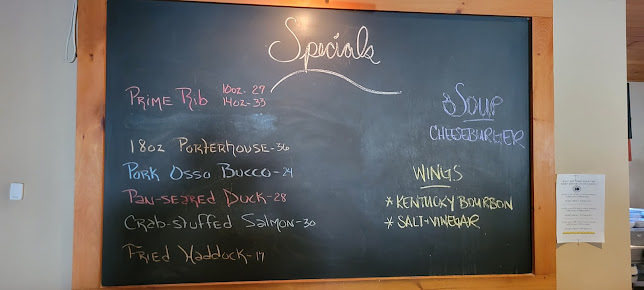 Specials
PRIME RIB 10oz. 27
14oz-33
18oz PORTERHOUSE-36
PORK OSSO BUCCO-24
PAN-SEARED DUCK-28
CRAB-STUFFED SALMON-30
FRIED HADDOCK-17
SOUP
CHEESEBURGER
WINGS
* KENTUCKY BOURBON
* SALT+VINEGAR